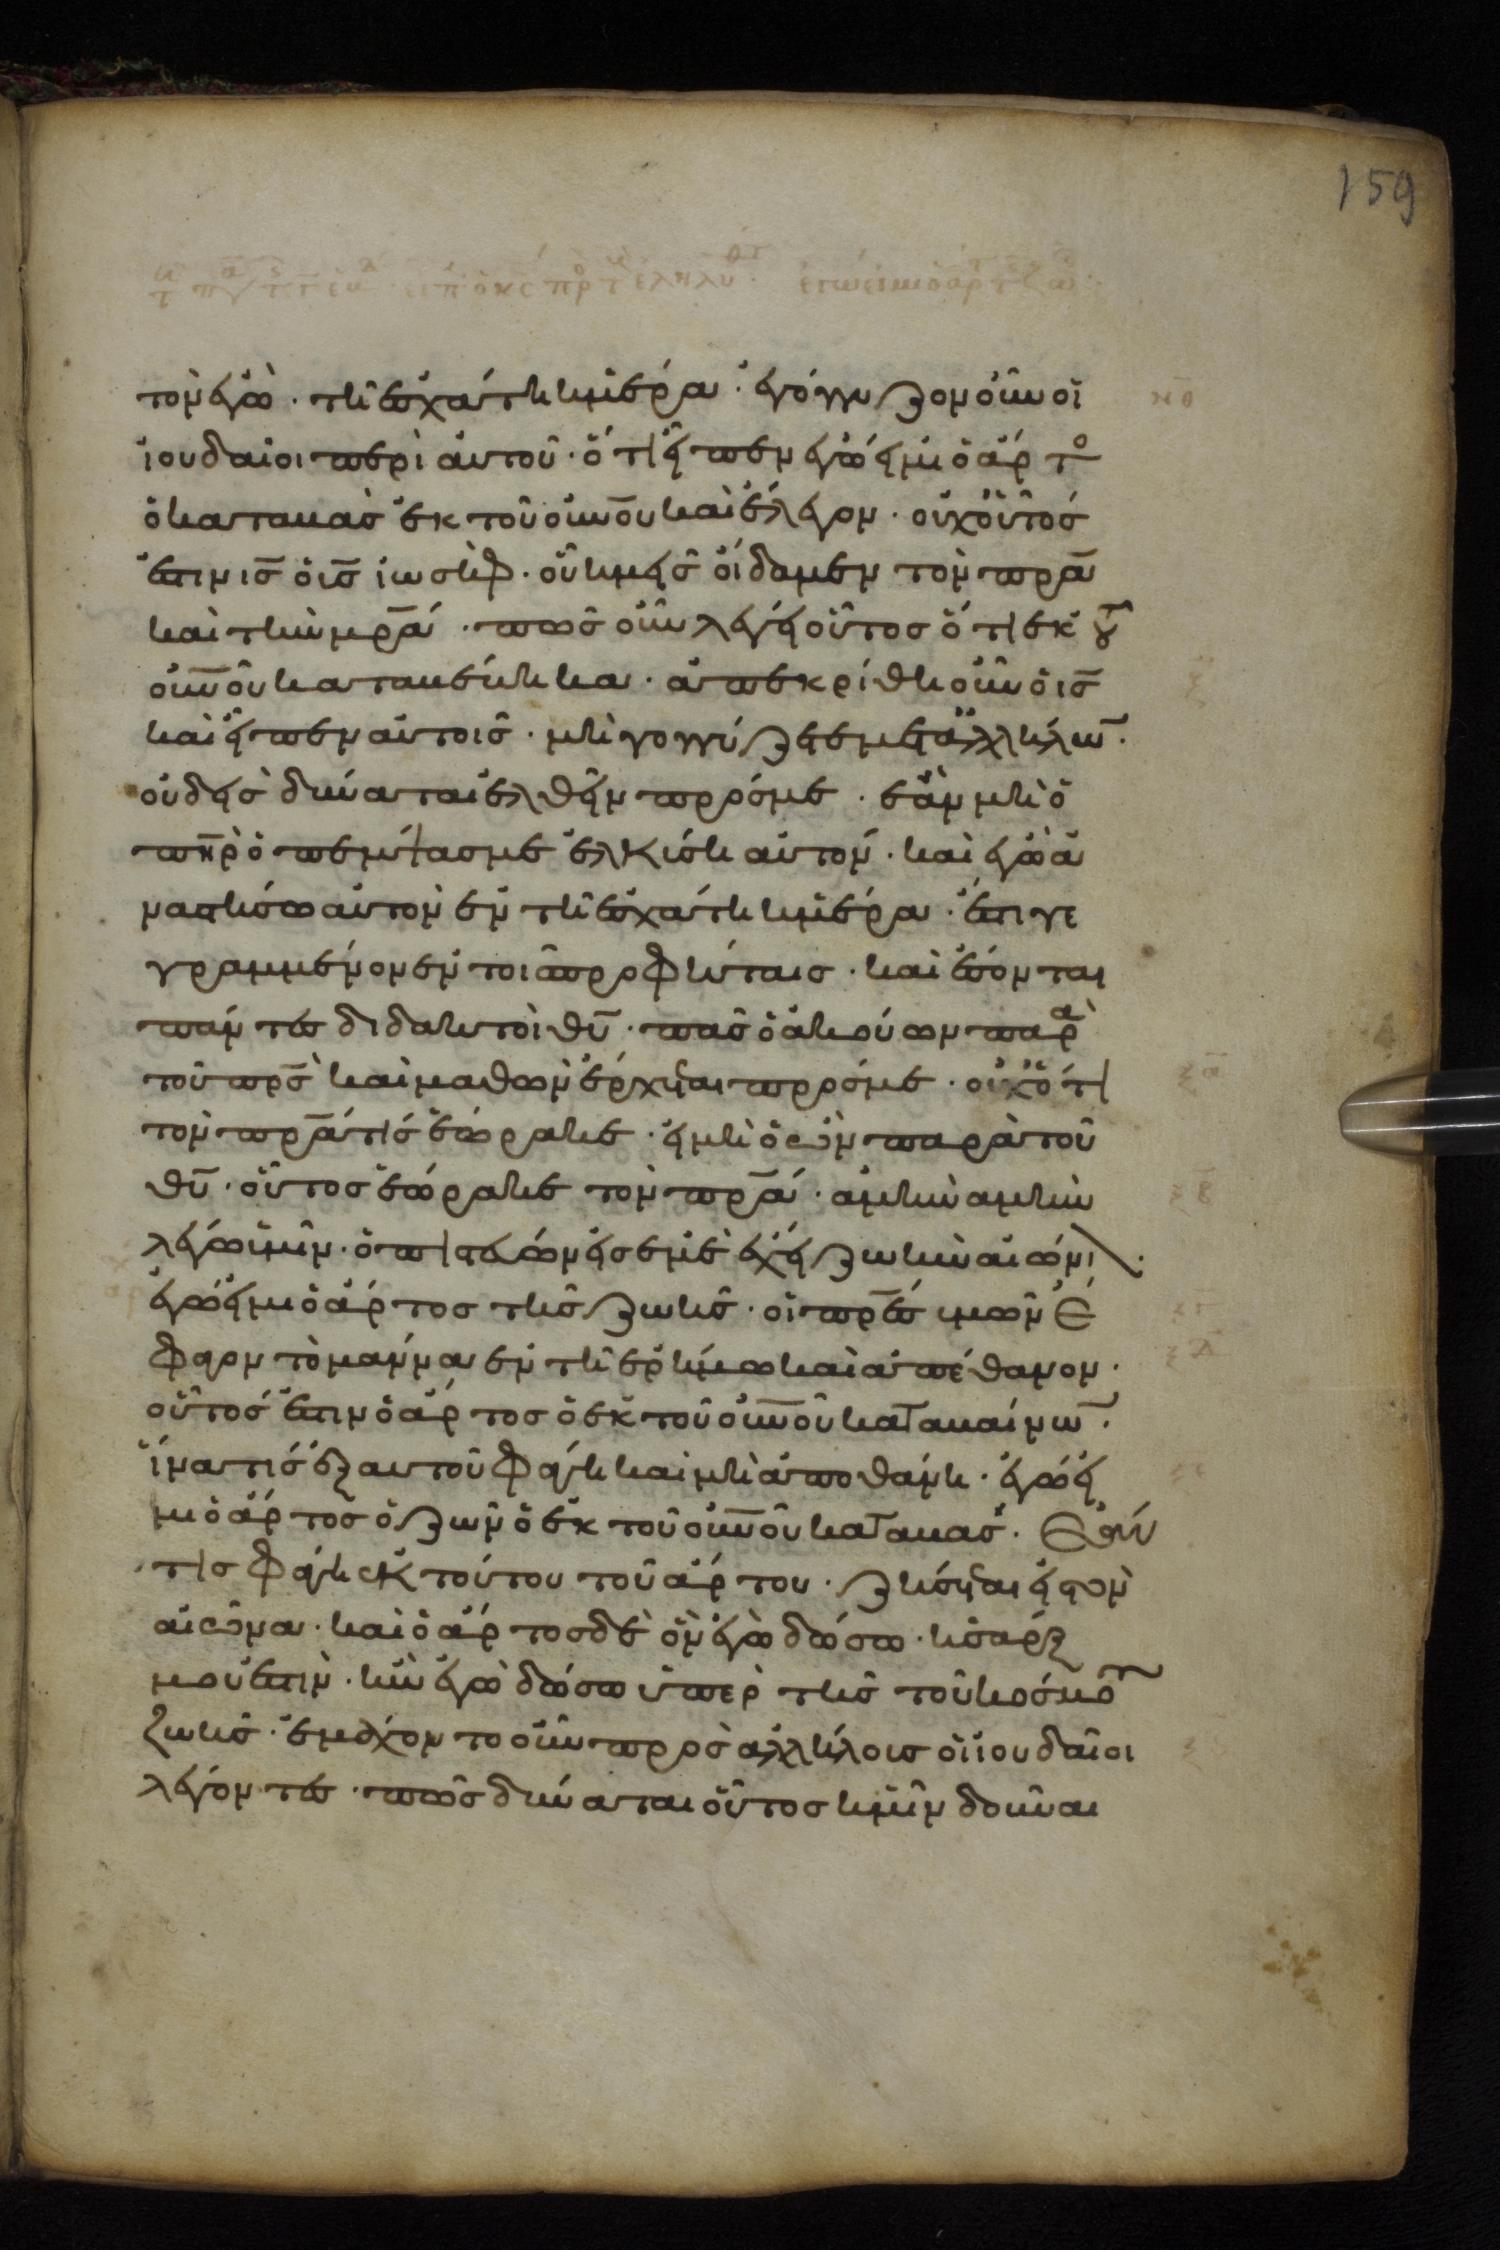 159
τὸν ἐγὼ · τῆ ἐσχάτη ἡμέρα · ἐγόγγυζον οὖν οἱ
ἰουδαῖοι περὶ αὐτοῦ · ὅτι εἶπεν ἐγώ εἰμι ὁ ἄρτο
ὁ καταβὰσ ἐκ τοῦ οὐνου καὶ ἔλεγον · οὐχ οὗτόσ
ἐστιν ισ ὁ υσ ἰωσὴφ · οὗ ἡμεῖσ οἴδαμεν τὸν πρα
καὶ τὴν μρα · πῶσ οὖν λέγει οὗτοσ ὅτι ἐκ τοῦ
οὐνοῦ καταβέβηκα · ἀπεκρίθη οὖν ὁ ισ
καὶ εἶπεν αὐτοῖσ · μὴ γογγύζετε μετ ἀλλήλων ·
οὐδεὶσ δύναται ἐλθεῖν πρόσ με · ἐὰν μὴ ὁ
πηρ ὁ πέμψασ με ἑλκύση αὐτόν · καὶ ἐγὼ ἀ
ναστήσω αὐτὸν ἐν τῆ ἐσχάτη ἡμέρα · ἔστι γε
γραμμένον ἐν τοῖσ προφήταισ · καὶ ἔσονται
πάντεσ διδακτοὶ θυ · πᾶσ ὁ ἀκούων παρὰ
τοῦ πρσ καὶ μαθὼν ἔρχεται πρόσ με · οὐχ ὅτι
τὸν πρα τίσ ἑώρακε · εἰ μὴ ὁ ὢν παρὰ τοῦ
θυ · οὗτοσ ἑώρακε τὸν πρα · ἀμὴν ἀμὴν
λέγω ὑμῖν · ὁ πιστεύων εἰσ ἐμὲ ἔχει ζωὴν αἰώνι ·
ἐγώ εἰμι ὁ ἄρτοσ τῆσ ζωῆσ · οἱ πρεσ ὑμῶν ἔ
φαγον τὸ μάννα ἐν τῆ ἐρήμω καὶ ἀπέθανον ·
οὗτόσ ἐστιν ὁ ἄρτοσ ὁ ἐκ τοῦ οὐνοῦ καταβαίνων ·
ἵνα τίσ ἐξ αὐτοῦ φάγη καὶ μὴ ἀποθάνη · ἐγώ εἰ
μι ὁ ἄρτοσ ὁ ζῶν ὁ ἐκ τοῦ οὐνοῦ καταβάσ · Ἐάν
τισ φάγη ἐκ τούτου τοῦ ἄρτου · ζήσεται εἰσ τὸν
αἰῶνα · καὶ ὁ ἄρτοσ δὲ ὃν ἐγὼ δώσω · ἡ σάρξ
μου ἐστὶν · ἣν ἐγὼ δώσω ὑπὲρ τῆσ τοῦ κόσμου
ζωῆσ · ἐμάχοντο οὖν πρὸσ ἀλλήλουσ οἱ ἰουδαῖοι
λέγοντεσ · πῶσ δύναται οὗτοσ ἡμῖν δοῦναι